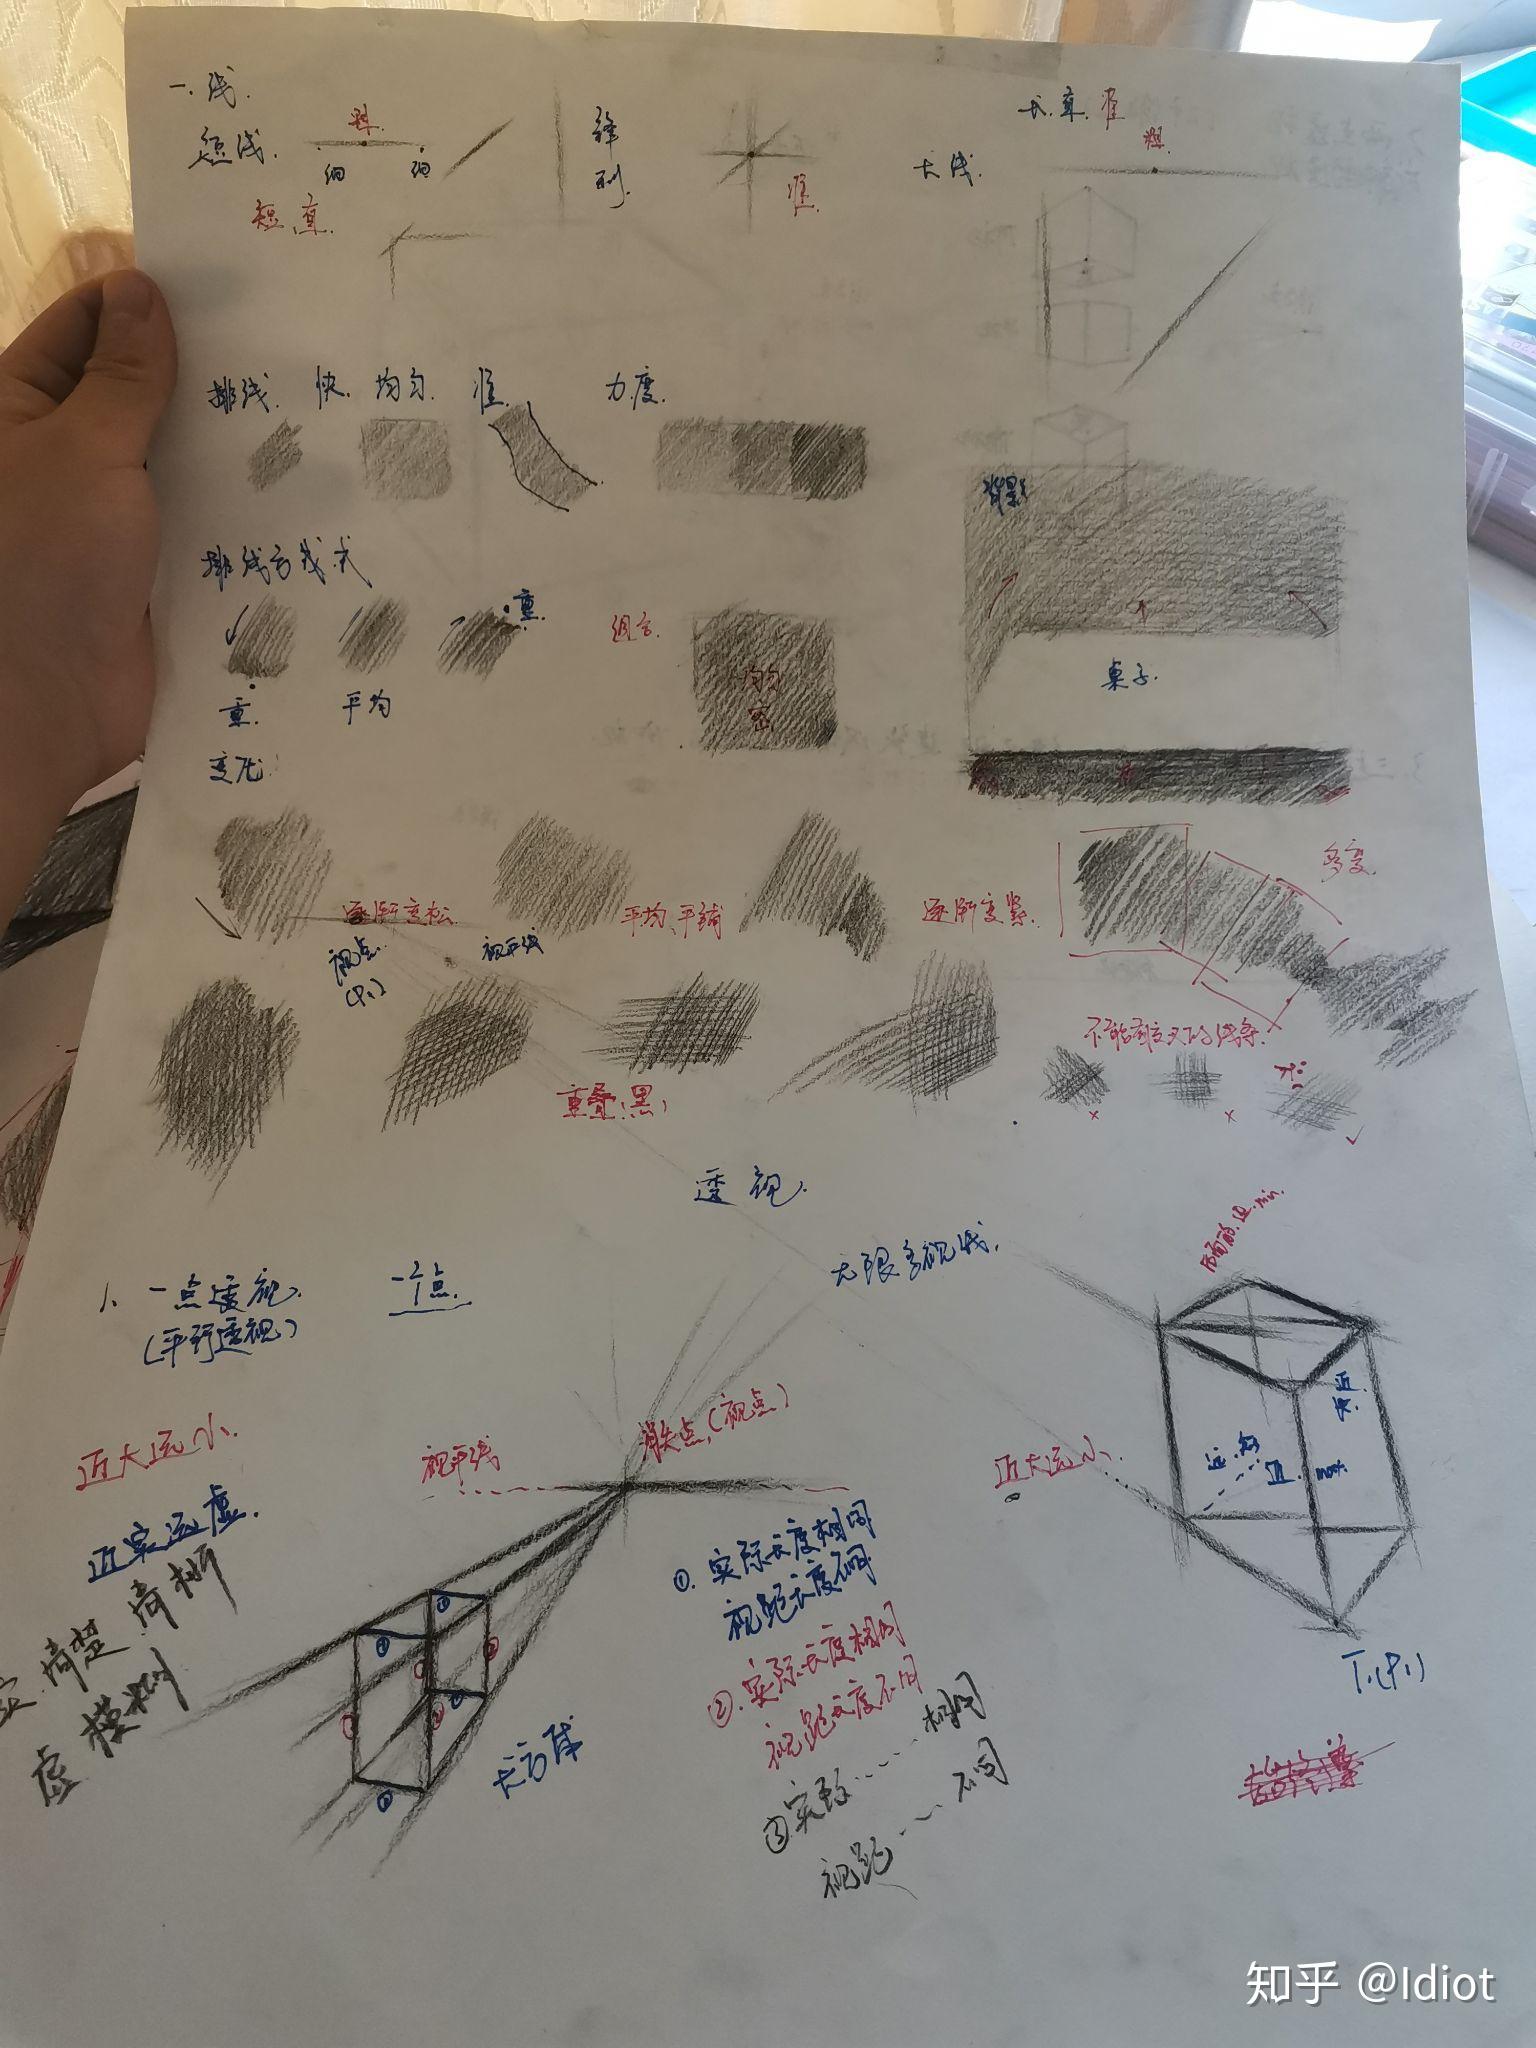 一.线.
短线. 粗 细 细
短、直.
锋利.
准.
长.直.准
长线. 粗
排线. 快. 均匀. 准. 力度.
背景
排线方式
重. 平均 重.
组合 均匀 密
桌子.
变化:
逐渐变松
平均、平铺
逐渐变紧.
多变.
视点.
(P1)
视平线
重叠(黑)
不能有交叉的线条.
× × ✓
透视.
1、一点透视.
(平行透视)
一个点.
无限多视线.
近大远小.
近实远虚.
实 清楚 清晰
虚 模糊
视平线
消失点,(视点)
近大远小.
近.长.
近. max.
①. 实际长度相同
视距长度不同
②. 实际长度相同
视距长度不同
③实际……相同
视距……不同
长方体
知乎 @Idiot